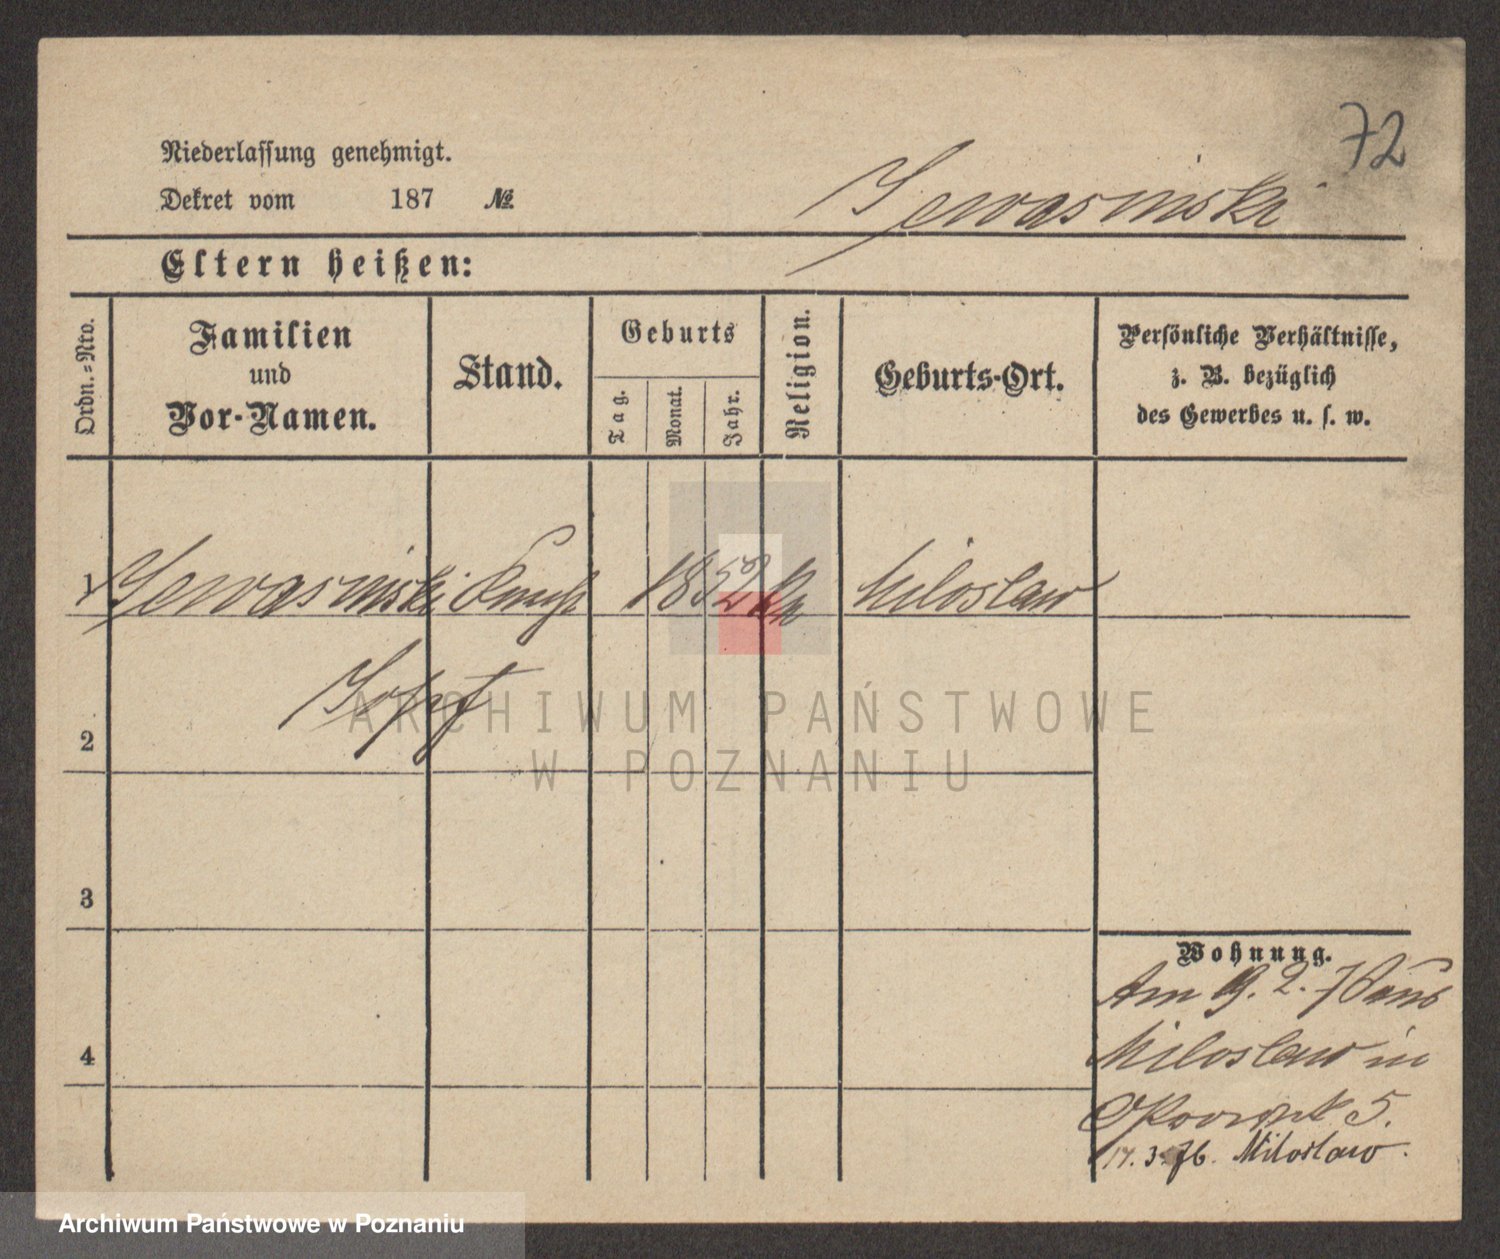 72
Niederlassung genehmigt.
Dekret vom 187 №
Jewasinski
Eltern heißen:
Ordn.-Nro.
Familien
und
Vor-Namen.
Stand.
Geburts
Tag.
Monat.
Jahr.
Religion.
Geburts-Ort.
Persönliche Verhältnisse,
z. B. bezüglich
des Gewerbes u. s. w.
1 Jewasinski 1852 Miloslaw
2
3
4
Wohnung.
Am 9. 2. 76 aus
Miloslaw in
5.
17. 3. 76. Miloslaw.
ARCHIWUM PAŃSTWOWE
W POZNANIU
Archiwum Państwowe w Poznaniu